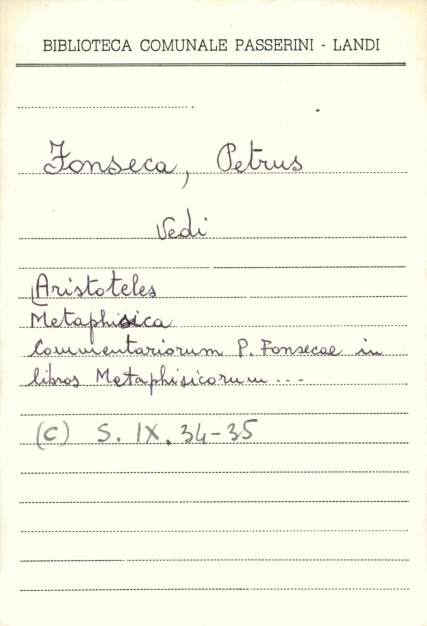 BIBLIOTECA COMUNALE PASSERINI - LANDI
Fonseca, Petrus
Vedi
Aristoteles
Metaphisica
Commentariorum P. Fonsecae in
libros Metaphisicorum ...
(C) S. IX. 34-35